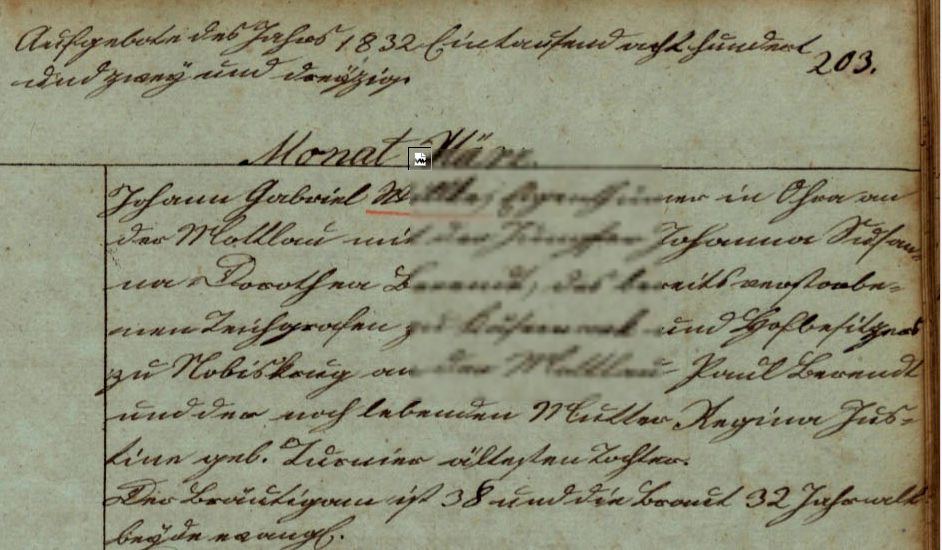 Aufgebote des Jahrs 1832 Eintausend acht hundert
und zwey und dreyzig
203.
Monat März.
Johann Gabriel in Ohra an
der Mottlau mit der Jungfer Johanna Susan=
na Dorothea Berendt, des bereits verstorbe=
nen Teichgrafen zu und Hofbesitzers
zu Nobiskrug an der Mottlau Paul Berendt
und der noch lebenden Mutter Regina Jus=
tine geb. Turnier ältesten Tochter.
Der Bräutigam ist 38 und die Braut 32 Jahr alt
beyde evangl.